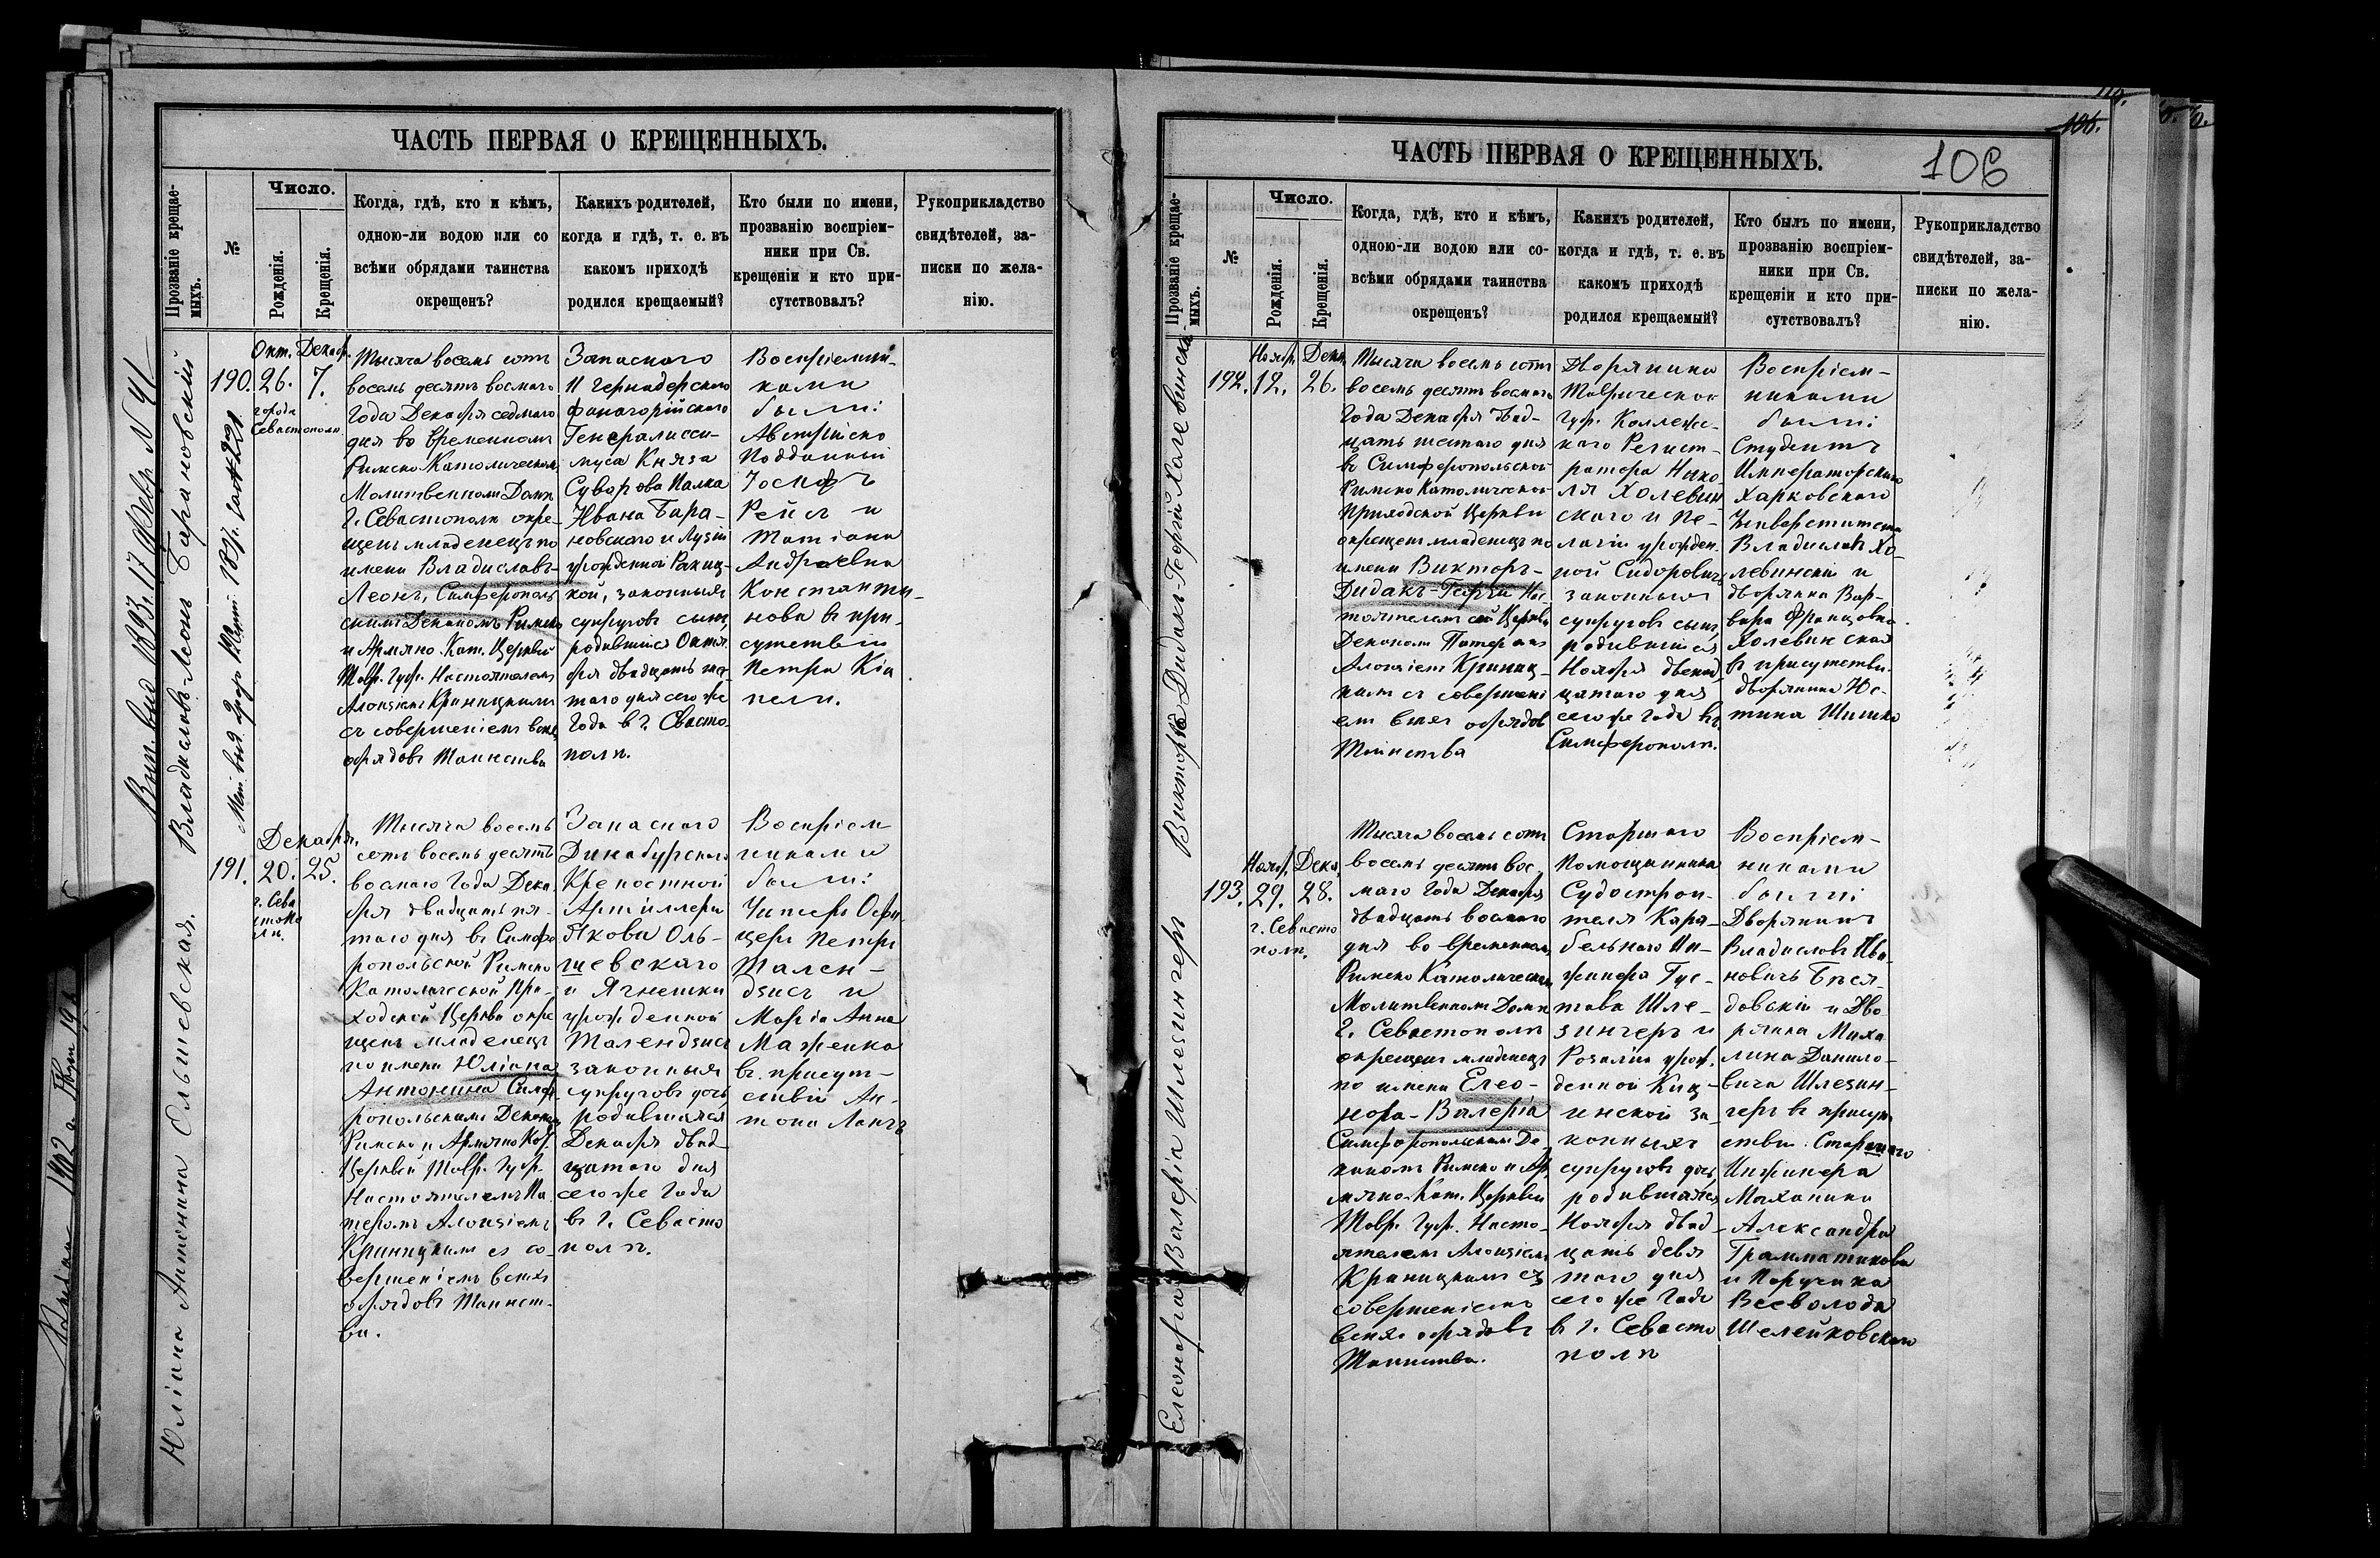 ЧАСТЬ ПЕРВАЯ О КРЕЩЕННЫХЪ.
Прозваніе крещае-
мыхъ.
№
Число.
Рожденія.
Крещенія.
Когда, гдѣ, кто и кѣмъ,
одною-ли водою или со
всѣми обрядами таинства
окрещенъ?
Какихъ родителей,
когда и гдѣ, т. е. въ
какомъ приходѣ
родился крещаемый?
Кто были по имени,
прозванію воспріем-
ники при Св.
крещеніи и кто при-
сутствовалъ?
Рукоприкладство
свидѣтелей, за-
писки по жела-
нію.
1893. 17 Февр. N 41
Владиславъ-Леонъ Барановскій
Окт. Декаб.
190. 26. 7.
города
Севастополи
Тысяча восемь сотъ
восемь десятъ восмаго
Года Декабря седмаго
дня во временномъ
Римско Католическом
Молитвенномъ Домѣ
г. Севастополя окре-
щенъ младенецъ по
имени Владиславъ-
Леонъ, Симферополь
скимъ Деканомъ Римско
и Армяно Кат. Церквей
Тавр. Губ. Настоятелемъ
Алоизіемъ Криницкимъ
съ совершеніемъ всѣхъ
обрядовъ Таинства
Запаснаго
11 Гернадерскаго
Фанагорійскаго
Генералисси-
муса Князя
Суворова Полка
Ивана Бара-
новскаго и Лузіи
урожденной Ракиц-
кой, законныхъ
супруговъ сынъ,
родившійся Октя
бря двадцать шес-
таго дня сего же
Года в г. Севасто
полѣ.
Воспріемни-
ками
были:
Австрійско
Подданный
Іосифъ
Рейсъ и
Татіана
Андреевна
Константи-
нова в при-
сутствіи
Петра Кіа
пели.
Юліана Антонина Ельшевская.
Декабря.
191. 20. 25.
г. Сева
стопо
ли.
Тысяча восемь
сотъ восемь десятъ
восмаго Года Дека
бря двадцать пя-
таго дня в Симфе
ропольской Римско
Католической При-
ходской Церкви окре
щенъ младенецъ
по имени Юліана
Антонина Симфе
ропольскимъ Деканом
Римско и Армяно Кат.
Церквей Тавр. Губ.
Настоятелемъ Па
теромъ Алоизіемъ
Криницкимъ съ со-
вершеніемъ всѣхъ
обрядовъ Таинст-
ва.
Запаснаго
Динабургской
Крепостной
Артиллеріи
Якова Оль-
шевскаго
и Ягнешки
урожденной
Талендзисъ
законныхъ
супруговъ дочь,
родившаяся
Декабря двад-
цатаго дня
сего же Года
в г. Севасто
полѣ.
Воспріем
никами
были:
Унтеръ Офи
церъ Петръ
Тален-
дзисъ и
Марія Анна
Маженка
в присут-
ствіи Ан-
тона Ланъ
ЧАСТЬ ПЕРВАЯ О КРЕЩЕННЫХЪ.
106
Прозваніе крещае-
мыхъ.
№
Число.
Рожденія.
Крещенія.
Когда, гдѣ, кто и кѣмъ,
одною-ли водою или со-
всѣми обрядами таинства
окрещенъ?
Какихъ родителей,
когда и гдѣ, т. е. въ
какомъ приходѣ
родился крещаемый?
Кто былъ по имени,
прозванію воспріем-
ники при Св.
крещеніи и кто при-
сутствовалъ?
Рукоприкладство
свидѣтелей, за-
писки по жела-
нію.
Викторъ Дидакъ-Георгій Холевинскій
Ноябр. Дека.
192. 12. 26.
Тысяча восемь сотъ
восемь десятъ восмаго
Года Декабря двад-
цать шестаго дня
в Симферопольской
Римско Католической
Приходской Церкви
окрещенъ младенецъ по
имени Викторъ-
Дидакъ-Георгій Нас-
тоятелемъ сей Церкви
Деканомъ Патеромъ
Алоизіемъ Криниц-
кимъ съ совершені
емъ всѣхъ обрядовъ
Таинства
Дворянина
Таврической
Губ. Коллежс-
каго Регист-
ратора Нико-
лая Холевин
скаго и Пе-
лагіи урожден.
ной Сидорович
законныхъ
супруговъ сынъ,
родившійся
Ноября двенад-
цатаго дня
сего же Года въ
Симферополѣ.
Воспріем-
никами
были:
Студентъ
Императорскаго
Харковскаго
Университета
Владиславъ Хо-
левинскій и
дворянка Вар-
вара Францовна
Холевинская
в присутствіи
дворянина Юс-
тина Шишко
Елеонора Валерія Шлезингеръ
Ноябр. Дека.
193. 29. 28.
г. Севасто
поли.
Тысяча восемь сотъ
восемь десятъ вос-
маго Года Декабря
двадцать восмаго
дня во временном
Римско Католическом
Молитвенномъ Домѣ
г. Севастополя
окрещенъ младенецъ
по имени Елео-
нора-Валерія
Симферопольскимъ Де-
каномъ Римско и Ар-
мяно-Кат. Церквей
Тавр. Губ. Насто-
ятелемъ Алоизіемъ
Криницкимъ съ
совершеніемъ
всѣхъ обрядовъ
Таинства.
Старшаго
Помощника
Судострои-
теля Кара-
бельнаго Ин-
женера Гус-
тава Шле-
зингеръ и
Розаліи урож.
денной Киц-
инской за
конныхъ
супруговъ дочь,
родившаяся
Ноября двад-
цать девя
таго дня
сего же Года
в г. Севасто
полѣ
Воспріем-
никами
были:
Дворянинъ
Владиславъ Ива
новичъ Беся-
довскій и Дво
рянка Миха
лина Данило-
вича Шлезин-
геръ в присут
ствіи Старшаго
Инженера
Механика
Александра
Грамматикова
и Поручика
Всеволода
Шелейковскаго